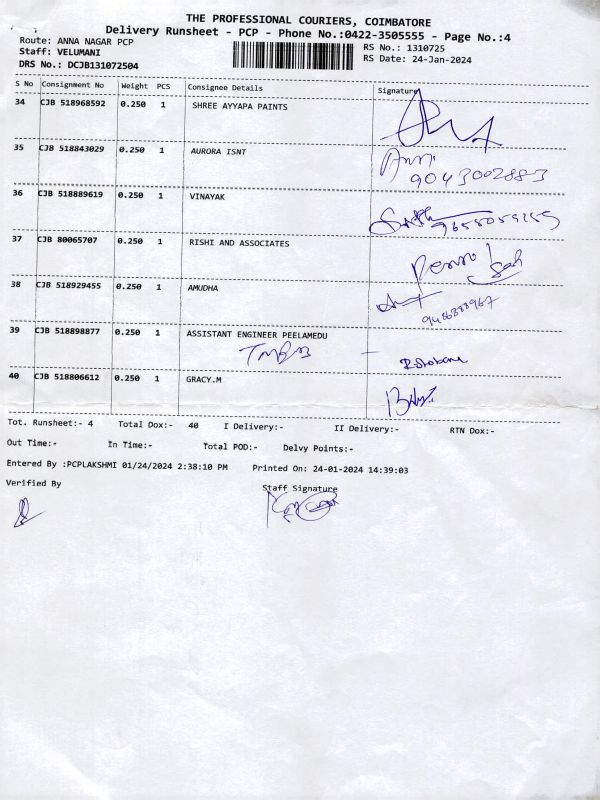 THE PROFESSIONAL COURIERS, COIMBATORE
Delivery Runsheet - PCP - Phone No.:0422-3505555 - Page No.:4
Route: ANNA NAGAR PCP RS No.: 1310725
Staff: VELUMANI RS Date: 24-Jan-2024
DRS No.: DCJB131072504
S No Consignment No Weight PCS Consignee Details Signature
34 CJB 518968592 0.250 1 SHREE AYYAPA PAINTS
35 CJB 518843029 0.250 1 AURORA ISNT
9043002883
36 CJB 518889619 0.250 1 VINAYAK
37 CJB 80065707 0.250 1 RISHI AND ASSOCIATES
38 CJB 518929455 0.250 1 AMUDHA
39 CJB 518898877 0.250 1 ASSISTANT ENGINEER PEELAMEDU
40 CJB 518806612 0.250 1 GRACY.M
Tot. Runsheet:- 4 Total Dox:- 40 I Delivery:- II Delivery:- RTN Dox:-
Out Time:- In Time:- Total POD:- Delvy Points:-
Entered By :PCPLAKSHMI 01/24/2024 2:38:10 PM Printed On: 24-01-2024 14:39:03
Verified By Staff Signature